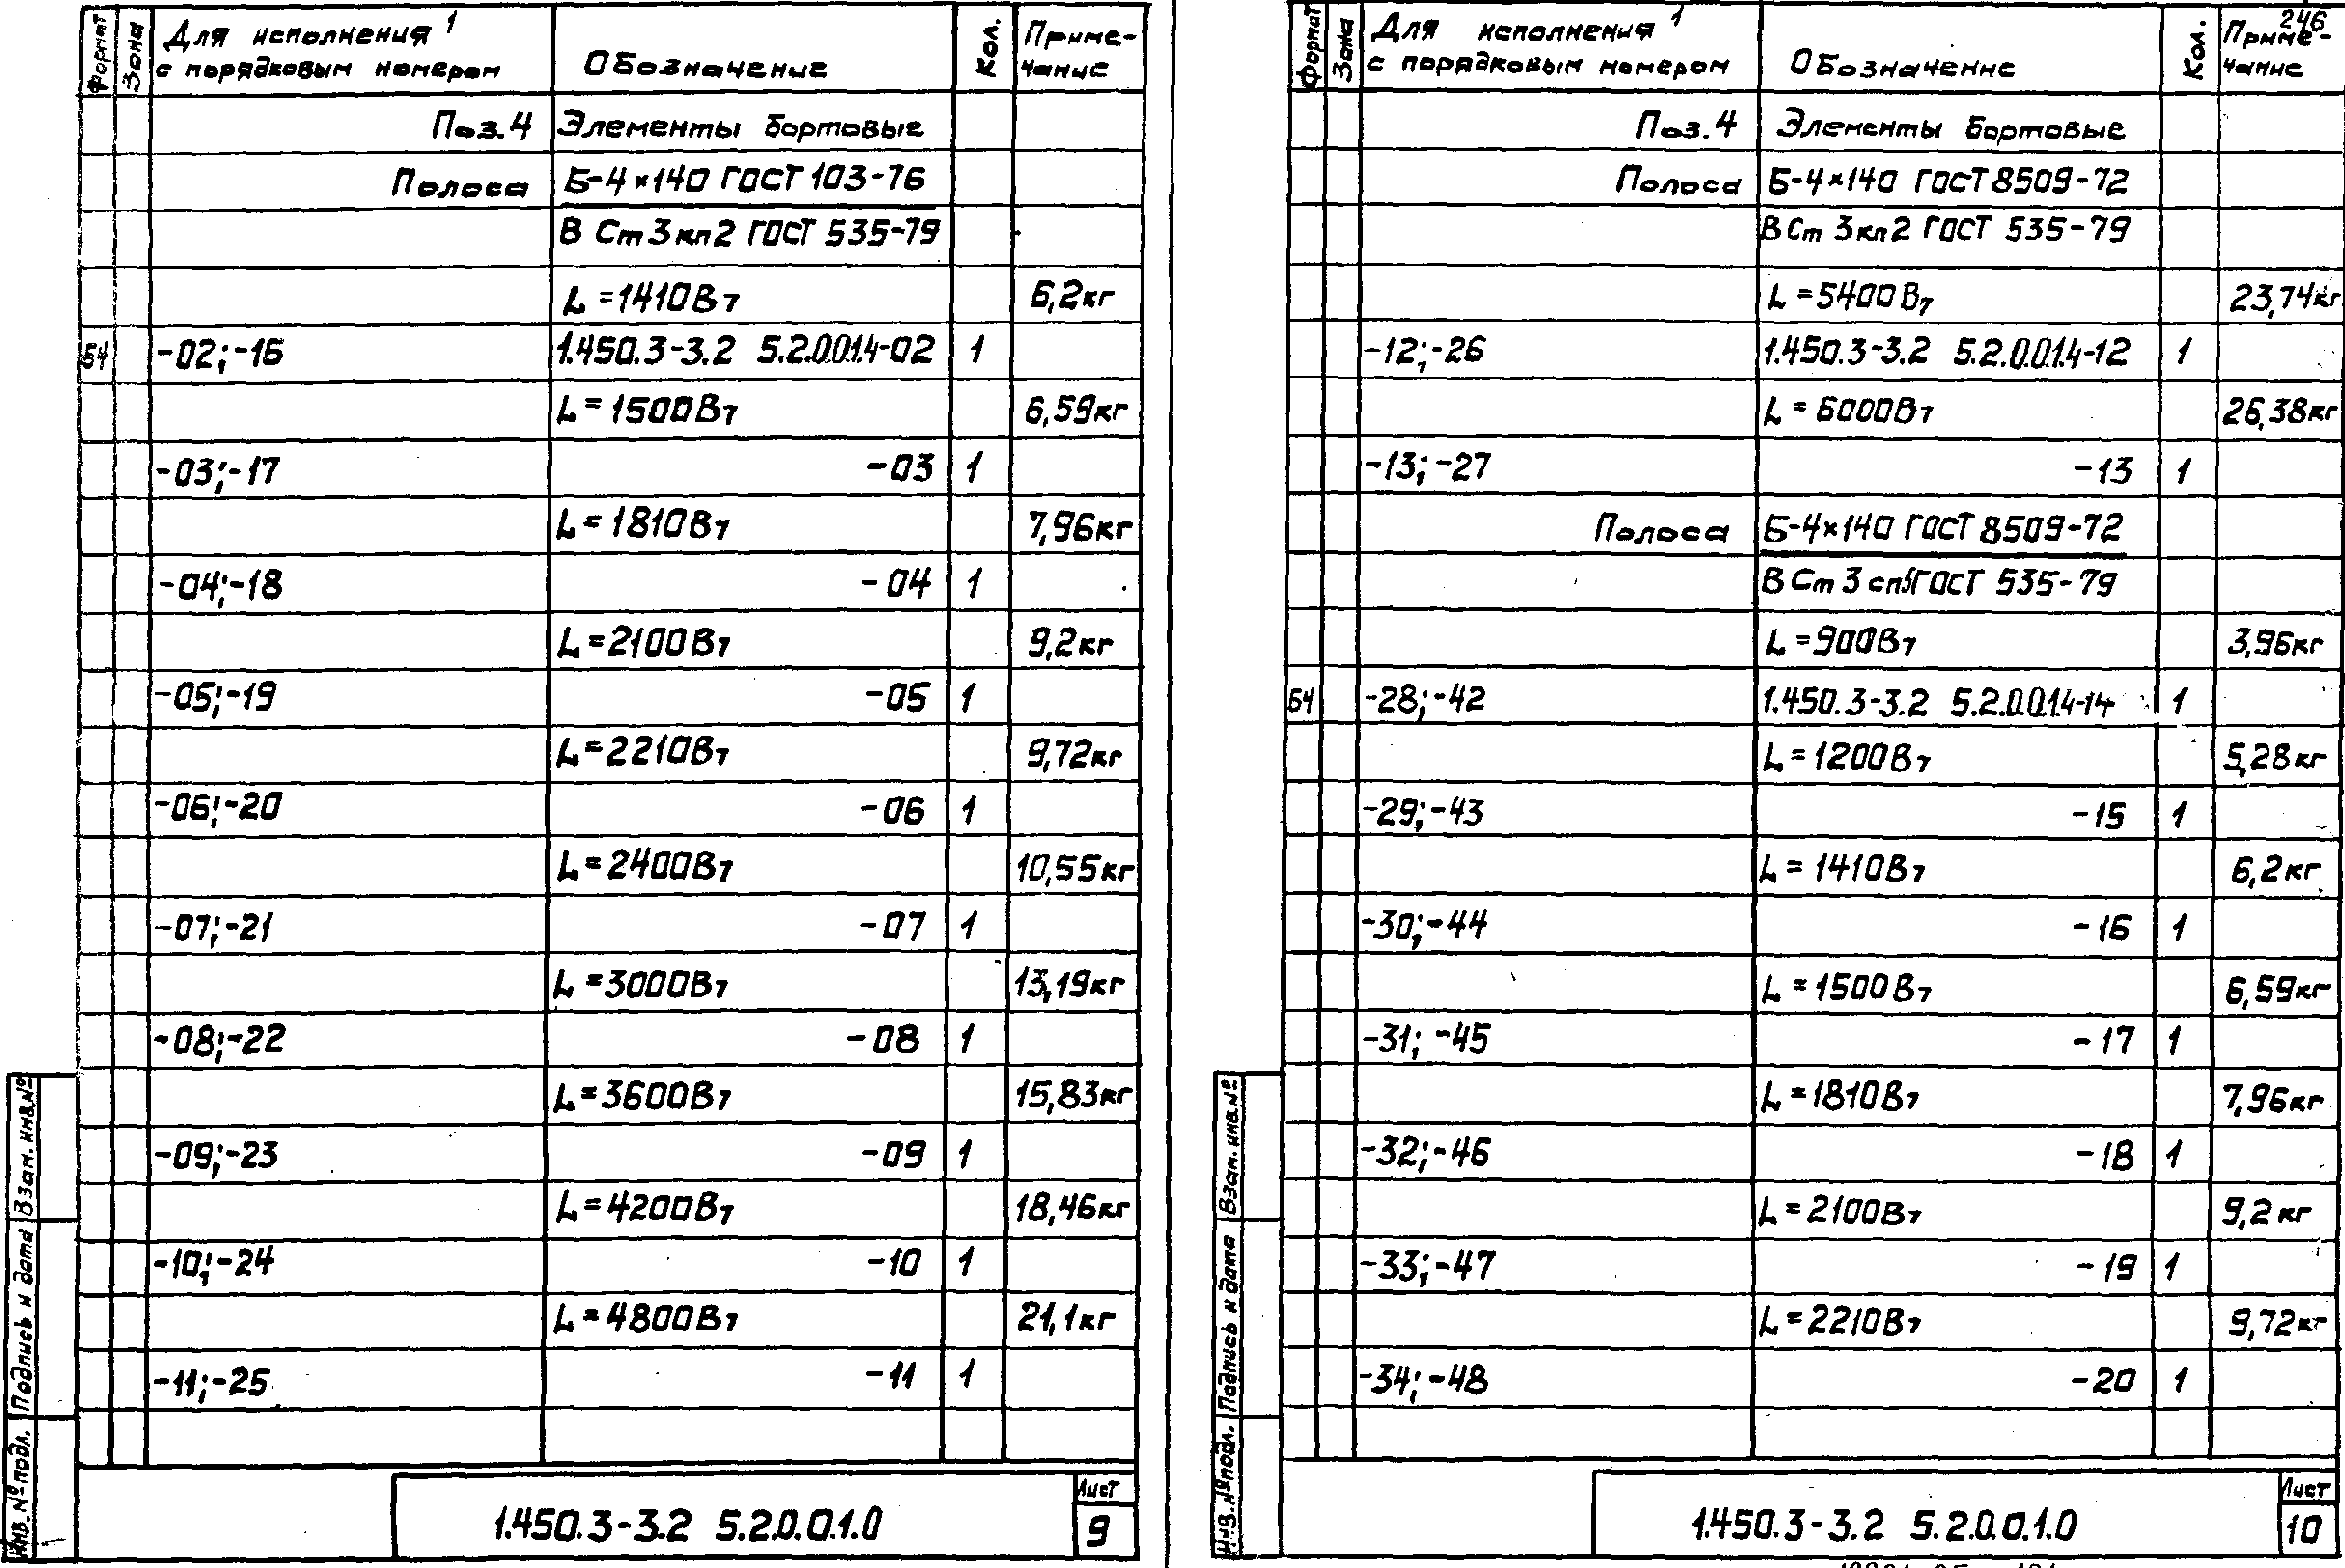 Формат Зона Для исполнения 1 с порядковым номером Обозначение Кол. Примечание
Поз.4 Элементы бортовые
Полоса Б-4×140 ГОСТ 103-76
В Ст 3 кп2 ГОСТ 535-79
L=1410Вт 6,2кг
Б4 -02;-16 1.450.3-3.2 5.2.0.0.1.4-02 1
L=1500Вт 6,59кг
-03;-17 -03 1
L=1810Вт 7,96кг
-04;-18 -04 1
L=2100Вт 9,2кг
-05;-19 -05 1
L=2210Вт 9,72кг
-06;-20 -06 1
L=2400Вт 10,55кг
-07;-21 -07 1
L=3000Вт 13,19кг
-08;-22 -08 1
L=3600Вт 15,83кг
-09;-23 -09 1
L=4200Вт 18,46кг
-10;-24 -10 1
L=4800Вт 21,1кг
-11;-25 -11 1
Инв.№подл. Подпись и дата Взам.инв.№
1.450.3-3.2 5.2.0.0.1.0
Лист
9
246
Формат Зона Для исполнения 1 с порядковым номером Обозначение Кол. Примечание
Поз.4 Элементы бортовые
Полоса Б-4×140 ГОСТ 8509-72
В Ст 3 кп2 ГОСТ 535-79
L=5400Вт 23,74кг
-12;-26 1.450.3-3.2 5.2.0.0.1.4-12 1
L=6000Вт 26,38кг
-13;-27 -13 1
Полоса Б-4×140 ГОСТ 8509-72
В Ст 3 сп5 ГОСТ 535-79
L=900Вт 3,96кг
Б4 -28;-42 1.450.3-3.2 5.2.0.0.1.4-14 1
L=1200Вт 5,28кг
-29;-43 -15 1
L=1410Вт 6,2кг
-30;-44 -16 1
L=1500Вт 6,59кг
-31;-45 -17 1
L=1810Вт 7,96кг
-32;-46 -18 1
L=2100Вт 9,2кг
-33;-47 -19 1
L=2210Вт 9,72кг
-34;-48 -20 1
Инв.№подл. Подпись и дата Взам.инв.№
1.450.3-3.2 5.2.0.0.1.0
Лист
10